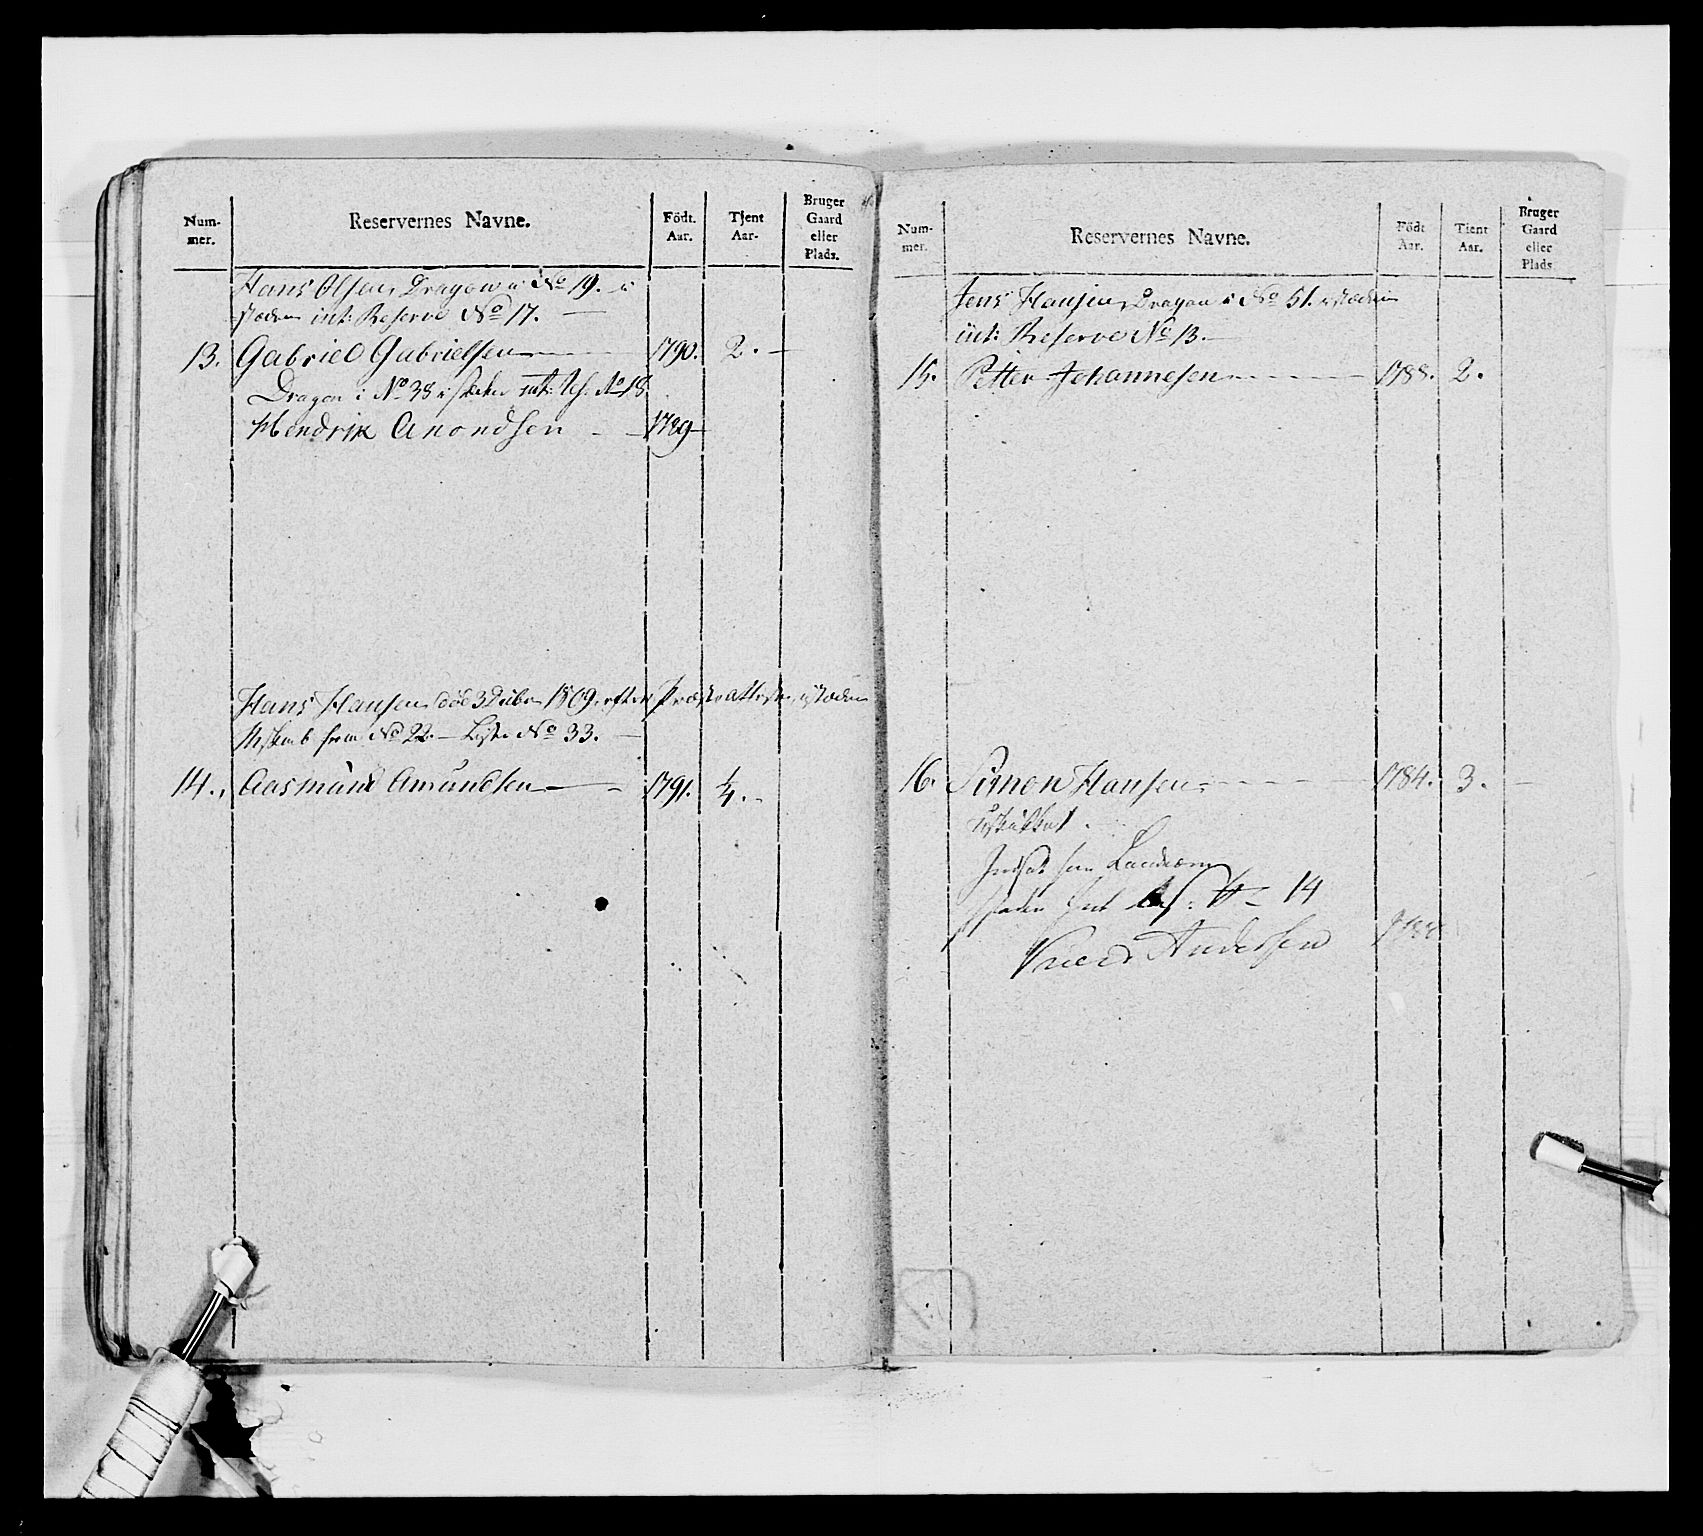 Num-
mer.
Reservernes Navne.
Födt.
Aar.
Tjent
Aar.
Bruger
Gaard
eller
Plads.
Hans Olsen, Dragon i No 19. i
stæden int: Reserve No 17. —
13. Gabriel Gabrielsen 1790. 2. —
Dragon i No 38 i stæden int: No 18
Hendrik Anondsen 1789
Hans Hansen død 3 1809. efter Præste attest, i stæden
from No 22. — No 33. —
14. Aasmund Amundsen 1791. ¼.
Num-
mer.
Reservernes Navne.
Födt
Aar.
Tient
Aar.
Bruger
Gaard
eller
Plads.
Jens Hansen, Dragon i No 51. i stæden
int: Reserve No 13. —
15. Petter Johannesen 1788. 2.
16. Simon Hansen 1784. 3. —
Indsat som Landværn
14
Andersen